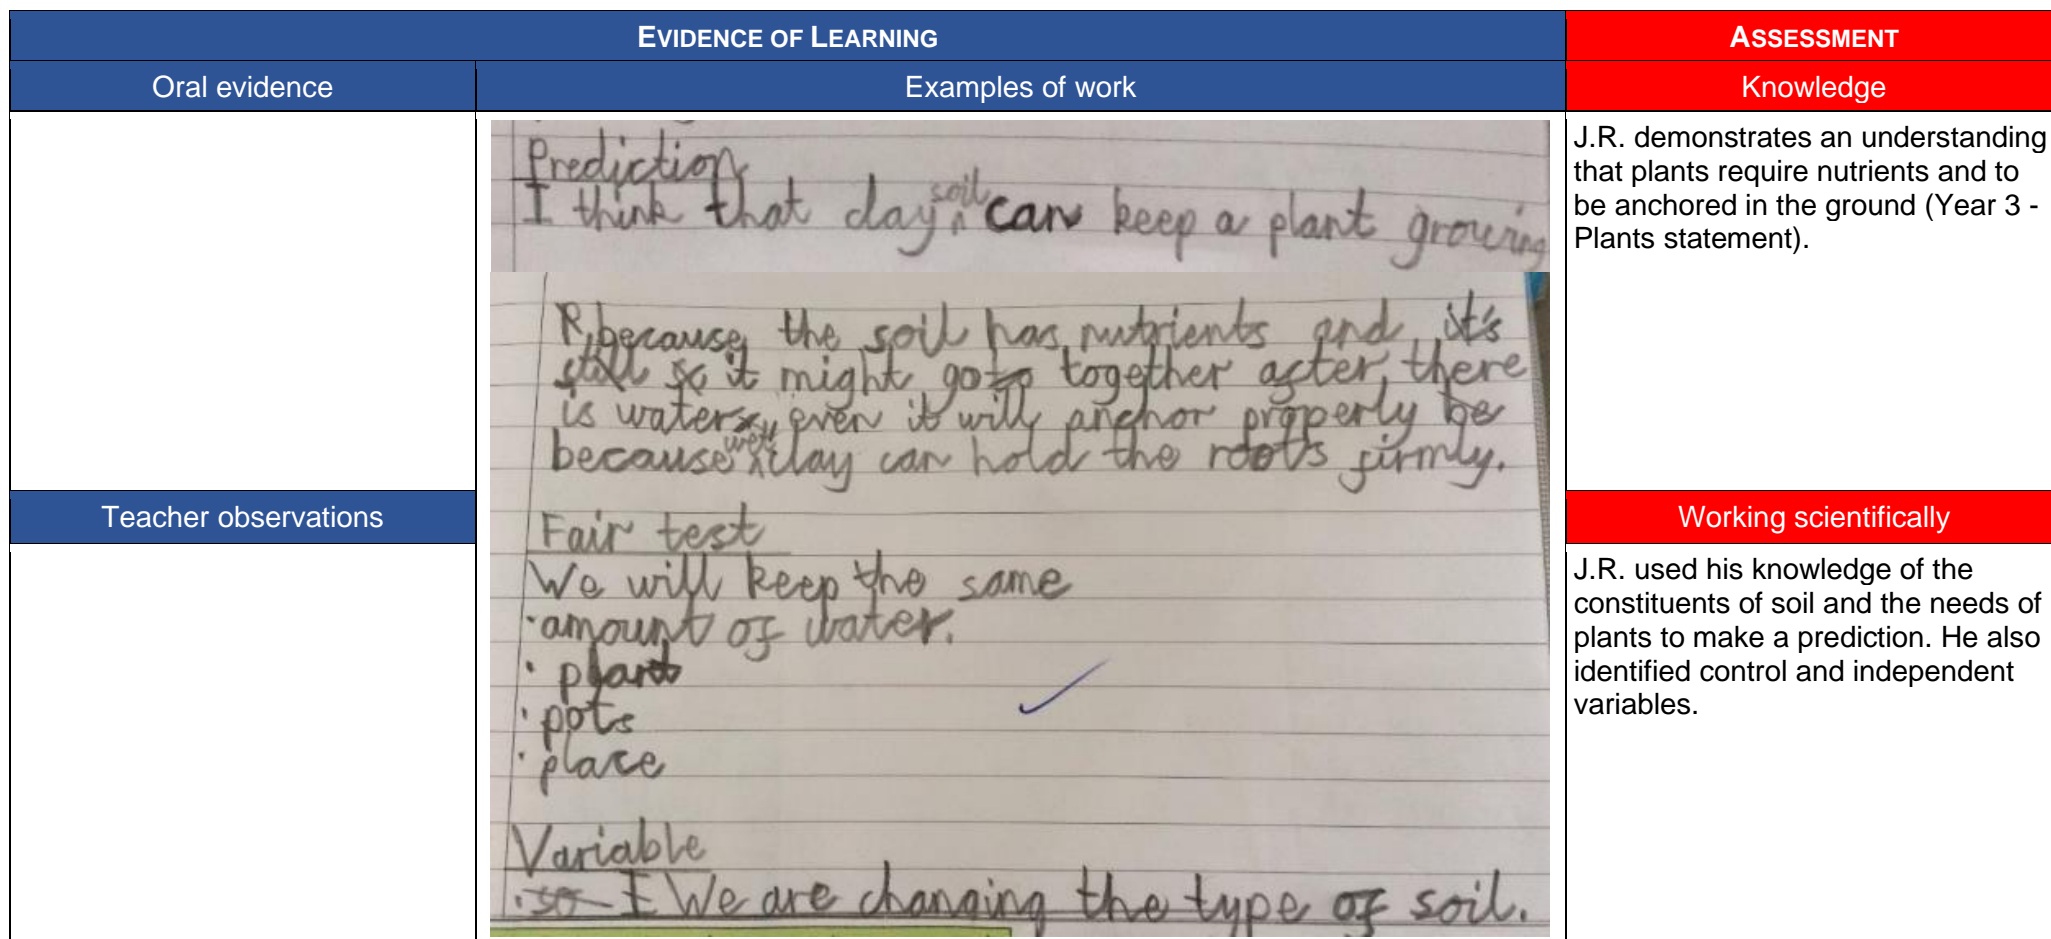 EVIDENCE OF LEARNING
ASSESSMENT
Oral evidence
Examples of work
Knowledge
Prediction
I think that clay soil can keep a plant growing
because the soil has nutrients and it's
still so it might go to together after there
is water, even it will anchor properly be
because wet clay can hold the roots firmly.
Fair test
We will keep the same
·amount of water.
· plant
· pots
· place
Variable
·so I We are changing the type of soil.
J.R. demonstrates an understanding
that plants require nutrients and to
be anchored in the ground (Year 3 -
Plants statement).
Teacher observations
Working scientifically
J.R. used his knowledge of the
constituents of soil and the needs of
plants to make a prediction. He also
identified control and independent
variables.